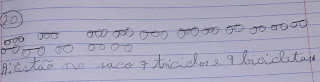 20)
R: Estão no saco 7 triciclos e 9 bicicletas